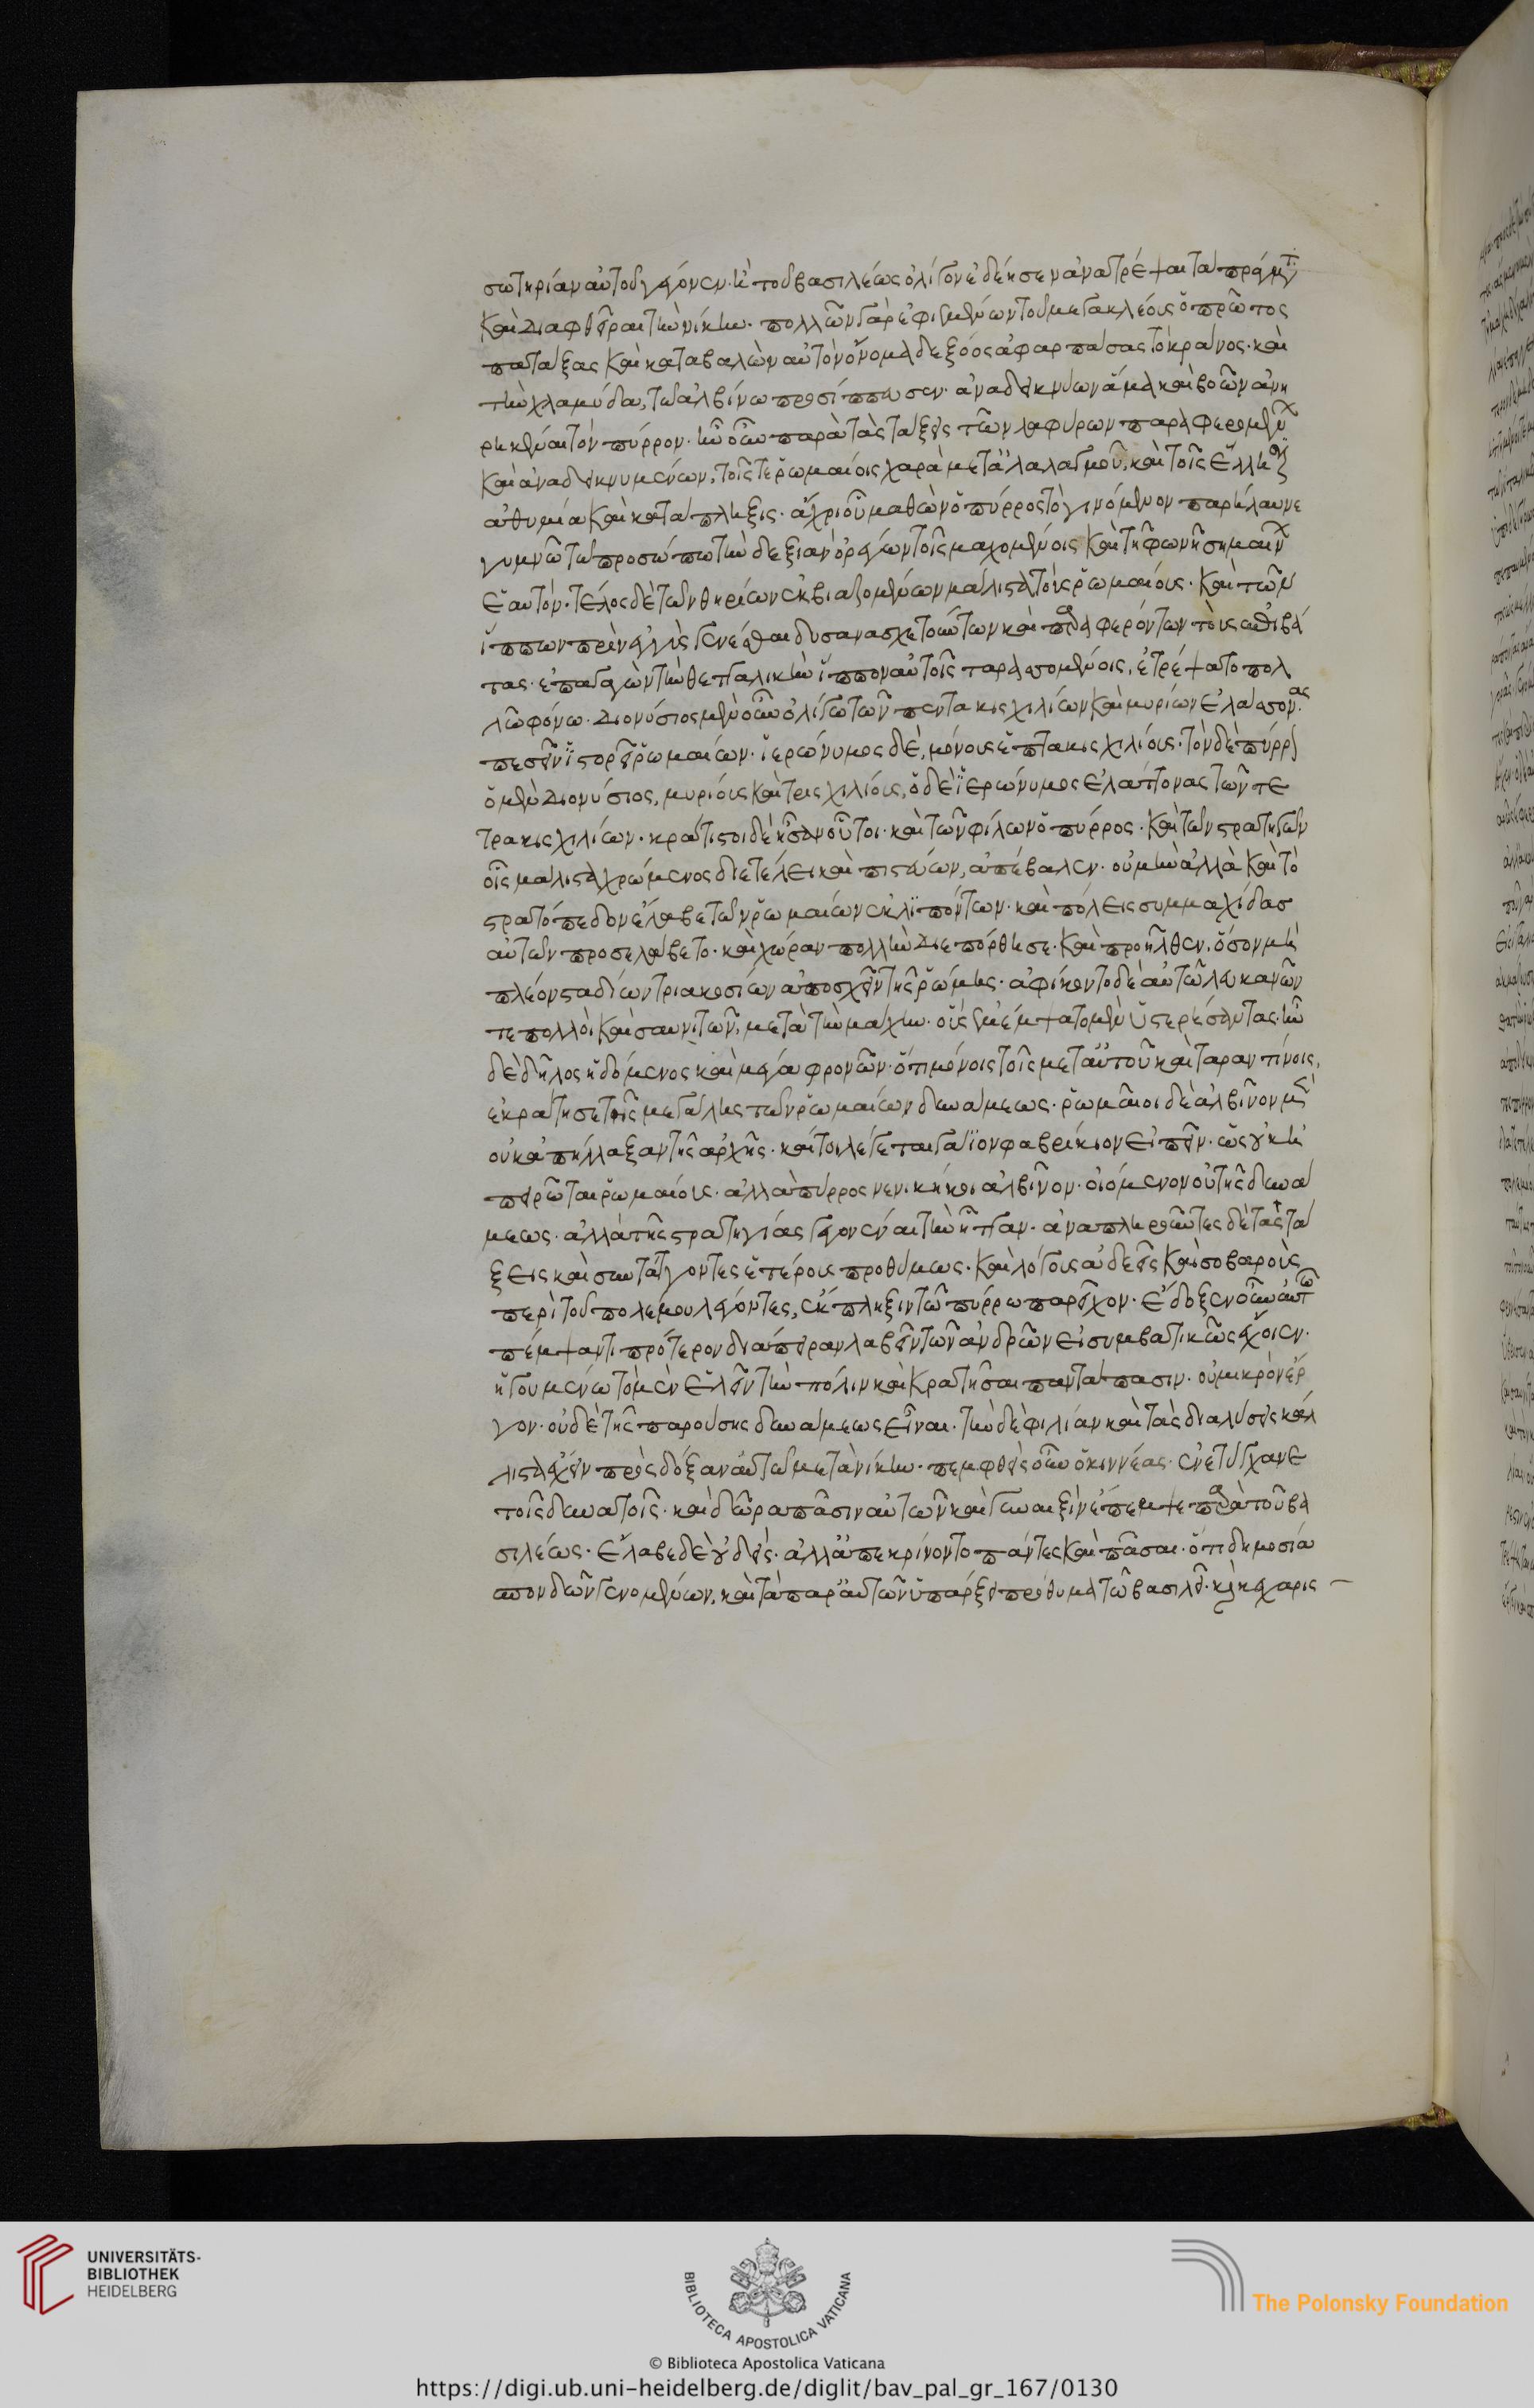 σωτηρίαν αὐτοῦ γέγονεν· ἡ τοῦ βασιλέως ὀλίγον ἐδέησεν ἀνατρέψαι τὰ πράγμτ
καὶ διαφθεῖραι τὴν νίκην. πολλῶν γὰρ ἐφιεμένων τοῦ μεγακλέους ὁ πρῶτος
πατάξας καὶ καταβαλὼν αὐτὸν ὄνομα δεξόος ἀφαρπάσας τὸ κράνος· καὶ
τὴν χλαμύδα, τῶ ἀλβίνω προσίππωσεν· ἀναδεικνύων ἅμα καὶ βοῶν ἀνη
ρηκέναι τὸν πύρρον. ἦν οὖν παρὰ τὰς τάξεις τῶν λαφύρων παραφερομένων
καὶ ἀναδεικνυμένων, τοῖς τε ῥωμαίοις χαρὰ μετὰ ἀλαλαγμοῦ, καὶ τοῖς ἕλλησι
ἀθυμία καὶ κατάπληξις. ἄχρι οὗ μαθὼν ὁ πύρρος τὸ γινόμενον παρήλαυνε
γυμνῶ τῶ προσώπω τὴν δεξιὰν ὀρέγων τοῖς μαχομένοις καὶ τῆ φωνῆ σημαίν
ἑαυτόν. τέλος δὲ τῶν θηρίων ἐκβιαζομένων μάλιστα τοὺς ῥωμαίους. καὶ τῶν
ἵππων πρὶν ἐγγὺς γενέσθαι δυσανασχετούντων καὶ παραφερόντων τοὺς ἐπιβά
τας· ἐπαγαγὼν τὴν θετταλικὴν ἵππον αὐτοῖς ταρασσομένοις, ἐτρέψατο πολ
λῶ φόνω. διονύσιος μὲν οὖν ὀλίγω τῶν πεντακισχιλίων καὶ μυρίων ἐλάσσονας
πεσεῖν ἱστορεῖ ῥωμαίων. ἱερώνυμος δὲ, μόνους ἑπτακισχιλίους. τὸν δὲ πύρρ
ὁ μὲν διονύσιος, μυρίους καὶ τρισχιλίους, ὁ δὲ ἱερώνυμος ἐλάττονας τῶν τε
τρακισχιλίων. κράτιστοι δὲ ἦσαν οὗτοι. καὶ τῶν φίλων ὁ πύρρος. καὶ τῶν στρατηγῶν
οἷς μάλιστα χρώμενος διετέλει καὶ πιστεύων, ἀπέβαλεν. οὐ μὴν ἀλλὰ καὶ τὸ
στρατόπεδον ἔλαβε τῶν ῥωμαίων ἐκλιπόντων. καὶ πόλεις συμμαχίδας
αὐτῶν προσελάβετο. καὶ χώραν πολλὴν διεπόρθησε. καὶ προῆλθεν, ὅσον μὴ
πλέον σταδίων τριακοσίων ἀποσχεῖν τῆς ῥώμης. ἀφίκοντο δὲ αὐτῶ λευκανῶν
τε πολλοὶ καὶ σαυνιτῶν, μετὰ τὴν μάχην. οἷς ἐμέμψατο μὲν ὑστερήσαντας. ἦν
δὲ δῆλος ἡδόμενος καὶ μέγα φρονῶν. ὅτι μόνοις τοῖς μεθ' αὑτοῦ καὶ ταραντίνοις,
ἐκράτησε τῆς μεγάλης τῶν ῥωμαίων δυνάμεως. ῥωμαῖοι δὲ ἀλβῖνον μὲν
οὐκ ἀπήλλαξαν τῆς ἀρχῆς. καίτοι λέγεται γάϊον φαβρίκιον εἰπεῖν. ὡς οὐκ ἠ
πειρῶται ῥωμαίους. ἀλλὰ πύρρος νενικήκοι ἀλβῖνον. οἰόμενον οὐ τῆς δυνά
μεως. ἀλλὰ τῆς στρατηγίας γεγονέναι τὴν ἧτταν. ἀναπληροῦντες δὲ τὰς τά
ξεις καὶ συντάττοντες ἑτέρους προθύμως. καὶ λόγους ἀδεεῖς καὶ σοβαροὺς
περὶ τοῦ πολέμου λέγοντες, ἔκπληξιν τῶ πύρρω παρεῖχον. ἔδοξεν οὖν αὐτῶ
πέμψαντι πρότερον διάπειραν λαβεῖν τῶν ἀνδρῶν εἰ συμβατικῶς ἔχοιεν.
ἡγουμένω τὸ μὲν ἑλεῖν τὴν πόλιν καὶ κρατῆσαι παντάπασιν. οὐ μικρὸν ἔρ
γον. οὐδὲ τῆς παρούσης δυνάμεως εἶναι. τὴν δὲ φιλίαν καὶ τὰς διαλύσεις κάλ
λιστα ἔχειν πρὸς δόξαν αὐτῶ μετὰ νίκην. πεμφθεὶς οὖν ὁ κιννέας. ἐνετύγχανε
τοῖς δυνατοῖς. καὶ δῶρα πᾶσιν αὐτῶν καὶ γυναιξὶν ἔπεμψε παρὰ τοῦ βα
σιλέως. ἔλαβε δὲ οὐδείς. ἀλλ' ἀπεκρίνοντο πάντες καὶ πᾶσαι. ὅτι δημοσία
σπονδῶν γενομένων, καὶ τὰ παρ' αὐτῶν ὑπάρξει πρόθυμα τῶ βασιλεῖ. κεχαρισ
UNIVERSITÄTS-
BIBLIOTHEK
HEIDELBERG
BIBLIOTECA APOSTOLICA VATICANA
The Polonsky Foundation
© Biblioteca Apostolica Vaticana
https://digi.ub.uni-heidelberg.de/diglit/bav_pal_gr_167/0130